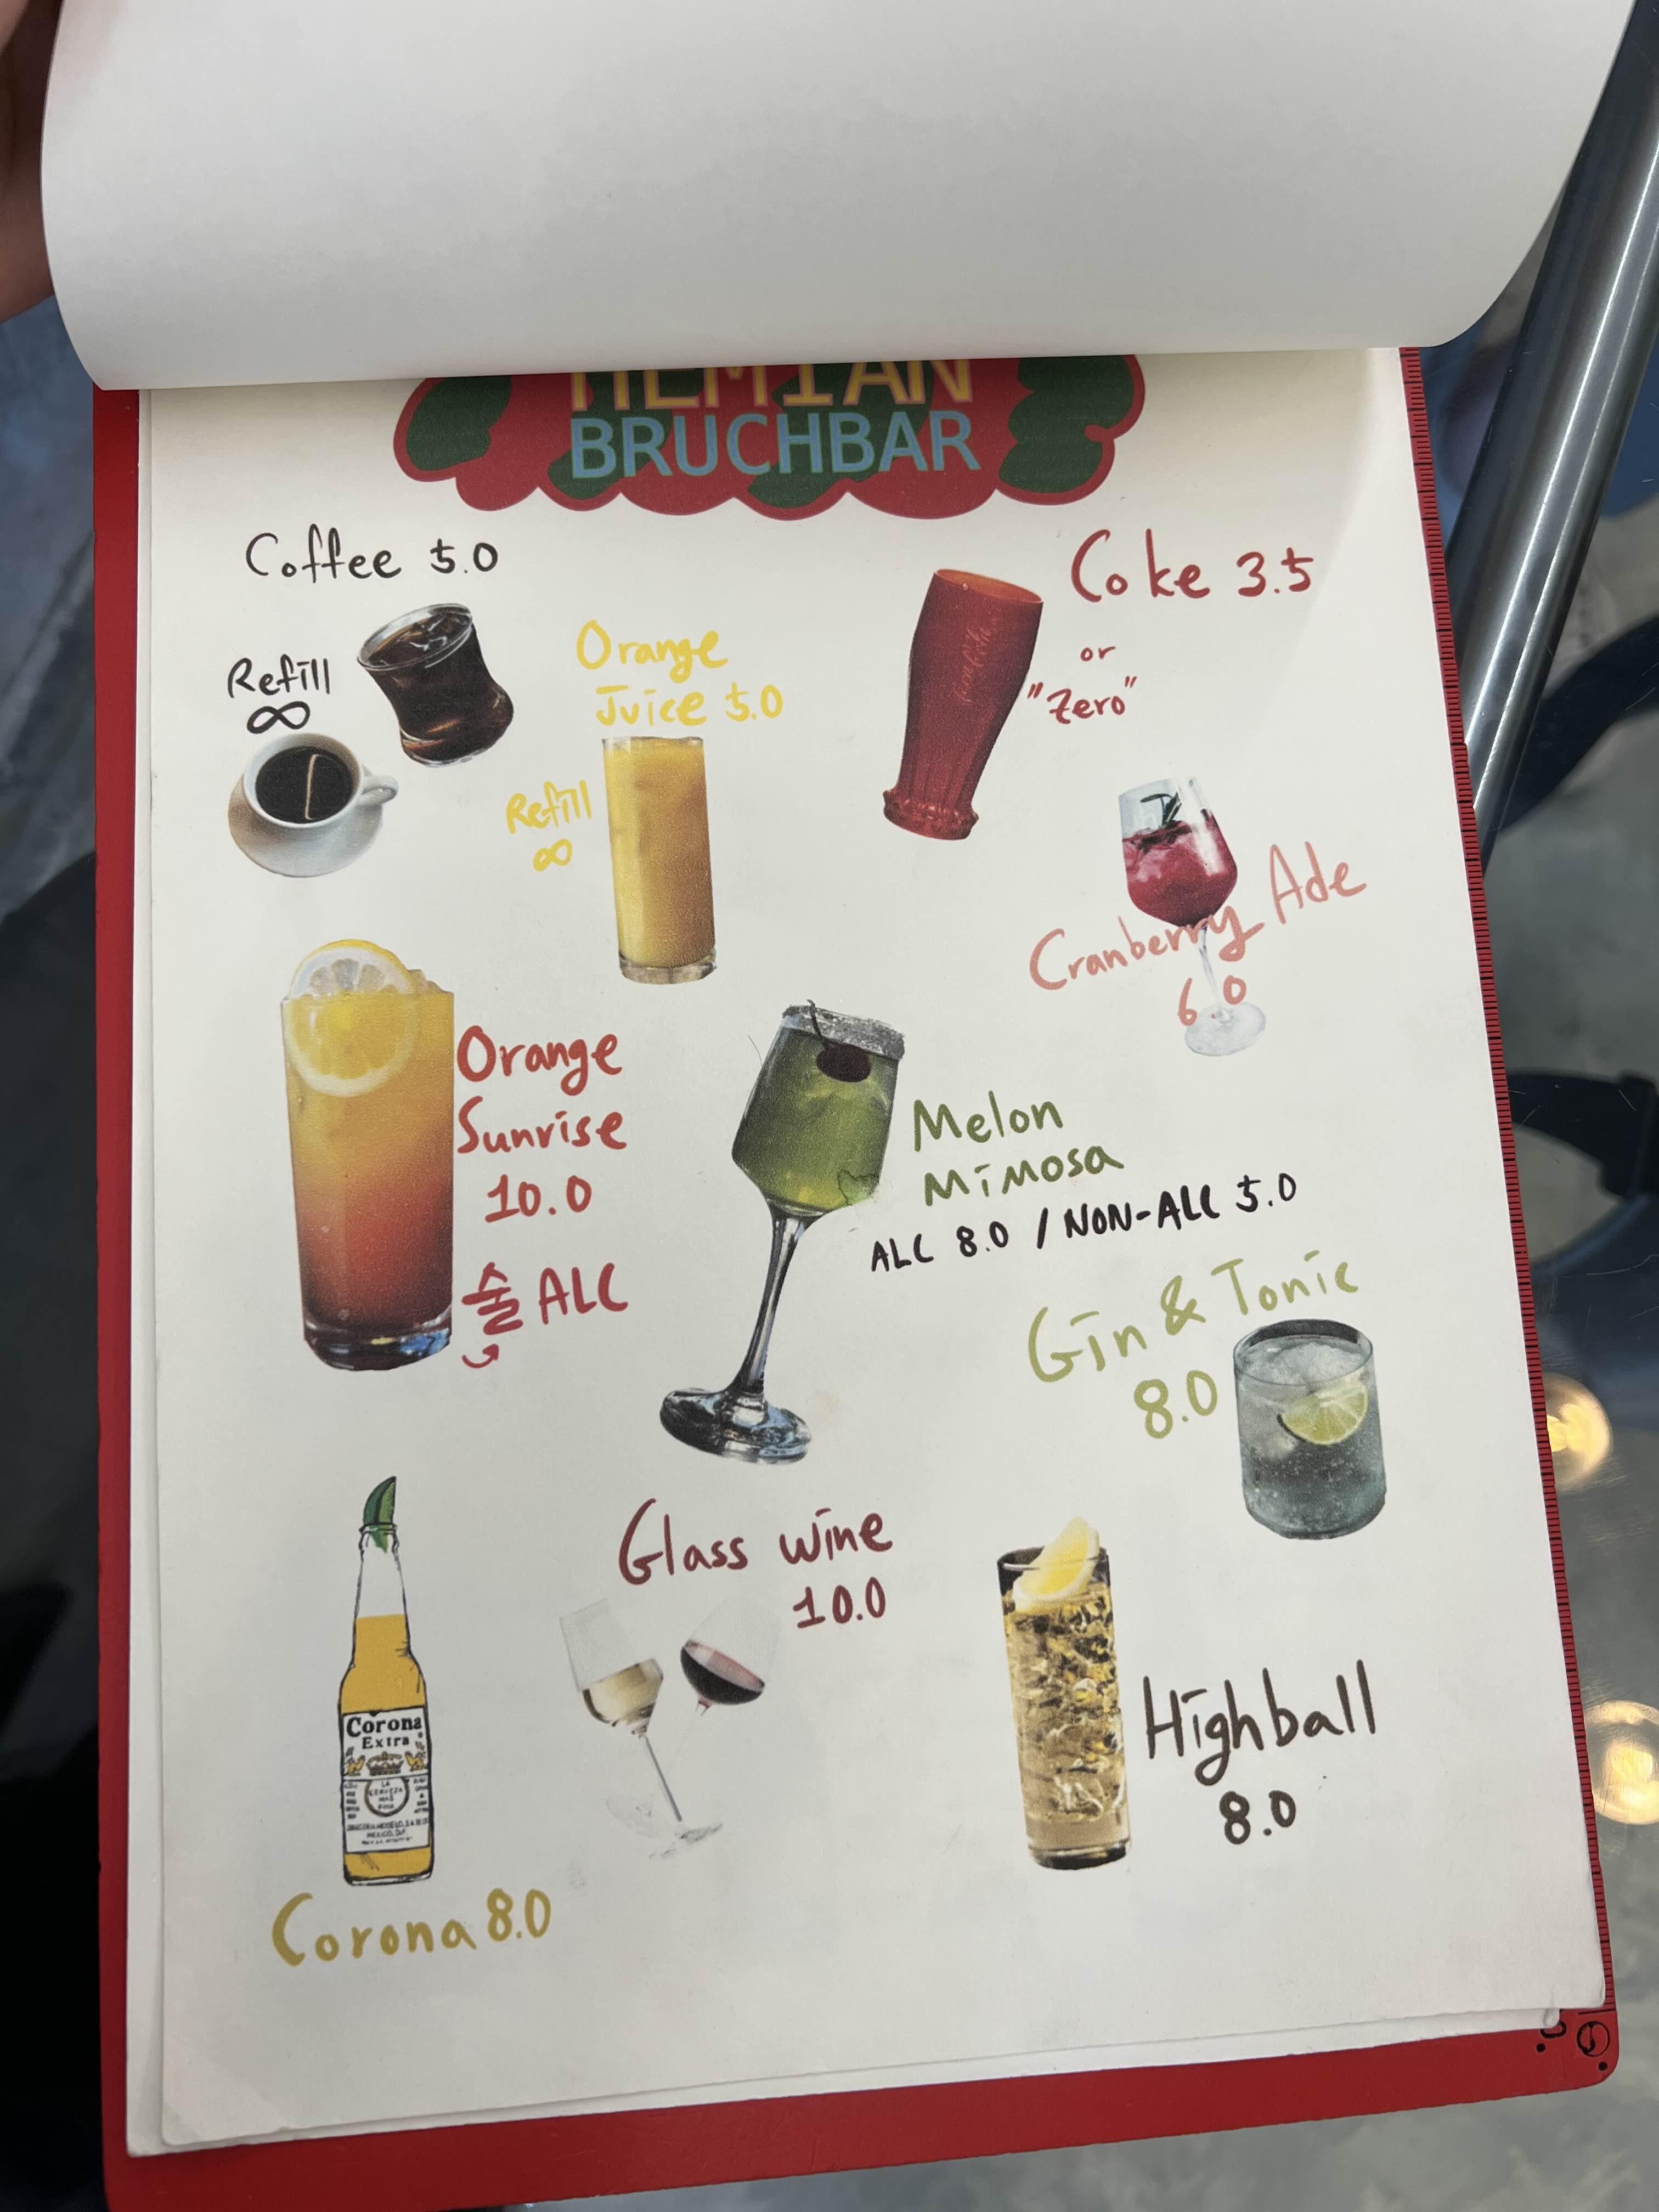 HEMIAN
BRUCHBAR
Coffee 5.0
Refill
∞
Orange
Juice 5.0
Refill
∞
Coke 3.5
or
"Zero"
Coca-Cola
Cranberry Ade
6.0
Orange
Sunrise
10.0
술 ALC
Melon
Mimosa
ALC 8.0 / NON-ALC 5.0
Gin & Tonic
8.0
Glass wine
10.0
Highball
8.0
Corona
Extra
LA
CERVEZA
MAS
FINA
MEXICO, D.F.
Corona 8.0